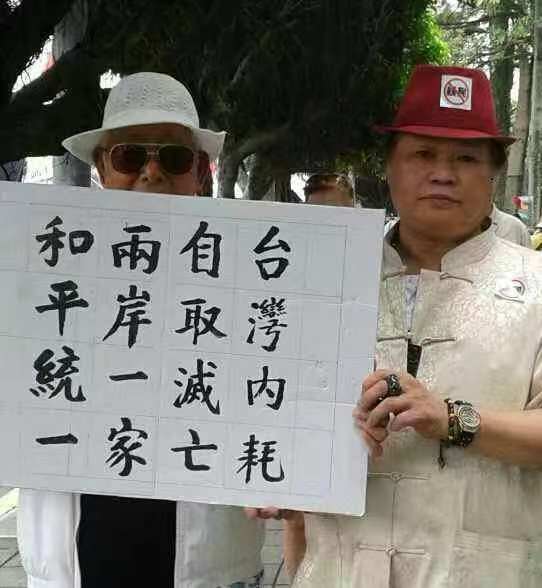 台灣內耗
自取滅亡
兩岸一家
和平統一